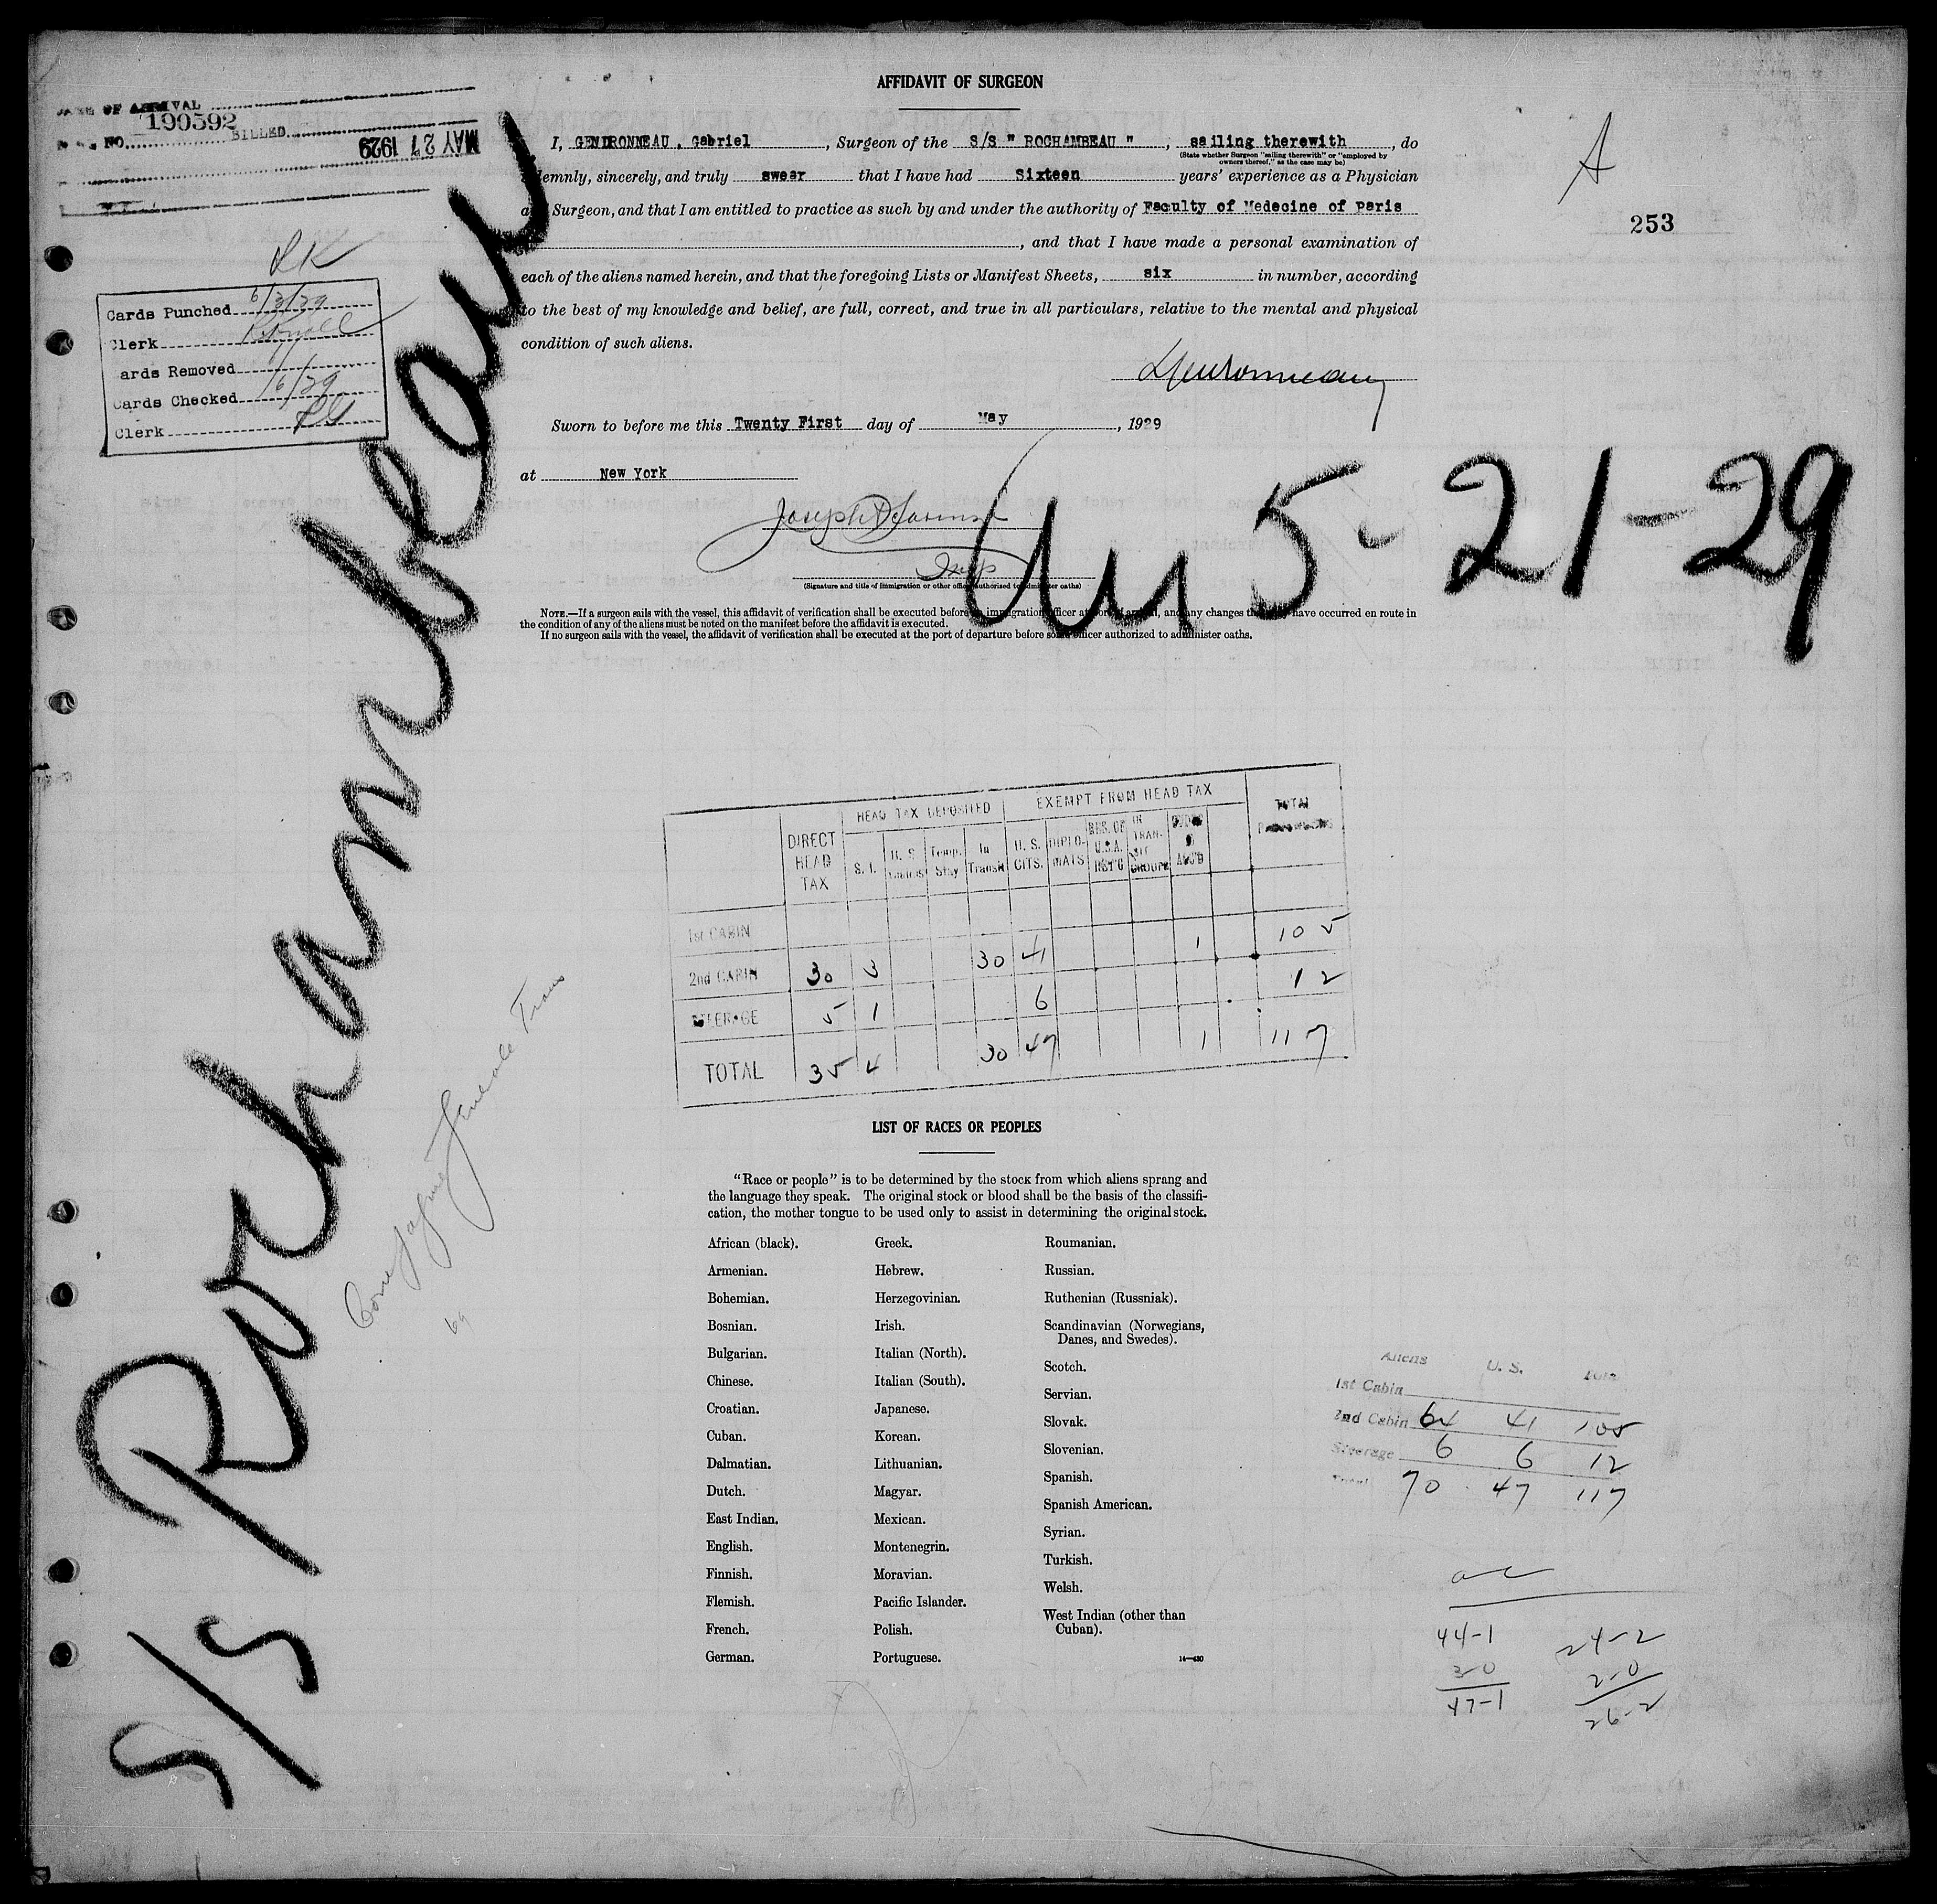 AFFIDAVIT OF SURGEON
DATE OF ARRIVAL
190592
NO. BILLED
MAY 27 1929
A
253
I, GENDRONNEAU, Gabriel, Surgeon of the S/S " ROCHAMBEAU ", sailing therewith, do
(State whether Surgeon "sailing therewith" or "employed by
owners thereof," as the case may be)
solemnly, sincerely, and truly swear that I have had Sixteen years' experience as a Physician
and Surgeon, and that I am entitled to practice as such by and under the authority of Faculty of Medecine of Paris
, and that I have made a personal examination of
each of the aliens named herein, and that the foregoing Lists or Manifest Sheets, six in number, according
to the best of my knowledge and belief, are full, correct, and true in all particulars, relative to the mental and physical
condition of such aliens.
Sworn to before me this Twenty First day of May, 1929
at New York
(Signature and title of immigration or other officer authorized to administer oaths)
NOTE.—If a surgeon sails with the vessel, this affidavit of verification shall be executed before an immigration officer at port of arrival, and any changes that may have occurred en route in
the condition of any of the aliens must be noted on the manifest before the affidavit is executed.
If no surgeon sails with the vessel, the affidavit of verification shall be executed at the port of departure before some officer authorized to administer oaths.
Cards Punched 6/3/29
Clerk
ards Removed
Cards Checked 6/29
Clerk
S/S Rochambeau
5-21-29
HEAD TAX DEPOSITED EXEMPT FROM HEAD TAX TOTAL
DIRECT HEAD TAX S. I. U. S. Temp. Stay In Transit U. S. CITS. DIPLOMATS RES. OF U.S.A. IN TRANSIT GROUPE
1st CABIN
2nd CABIN 30 3 30 41 1 105
STEERAGE 5 1 6 12
TOTAL 35 4 30 47 1 117
LIST OF RACES OR PEOPLES
"Race or people" is to be determined by the stock from which aliens sprang and
the language they speak. The original stock or blood shall be the basis of the classifi-
cation, the mother tongue to be used only to assist in determining the original stock.
African (black).
Armenian.
Bohemian.
Bosnian.
Bulgarian.
Chinese.
Croatian.
Cuban.
Dalmatian.
Dutch.
East Indian.
English.
Finnish.
Flemish.
French.
German.
Greek.
Hebrew.
Herzegovinian.
Irish.
Italian (North).
Italian (South).
Japanese.
Korean.
Lithuanian.
Magyar.
Mexican.
Montenegrin.
Moravian.
Pacific Islander.
Polish.
Portuguese.
Roumanian.
Russian.
Ruthenian (Russniak).
Scandinavian (Norwegians,
Danes, and Swedes).
Scotch.
Servian.
Slovak.
Slovenian.
Spanish.
Spanish American.
Syrian.
Turkish.
Welsh.
West Indian (other than
Cuban).
Aliens U. S. Total
1st Cabin
2nd Cabin 64 41 105
Steerage 6 6 12
Total 70 47 117
44-1 24-2
3-0 2-0
47-1 26-2